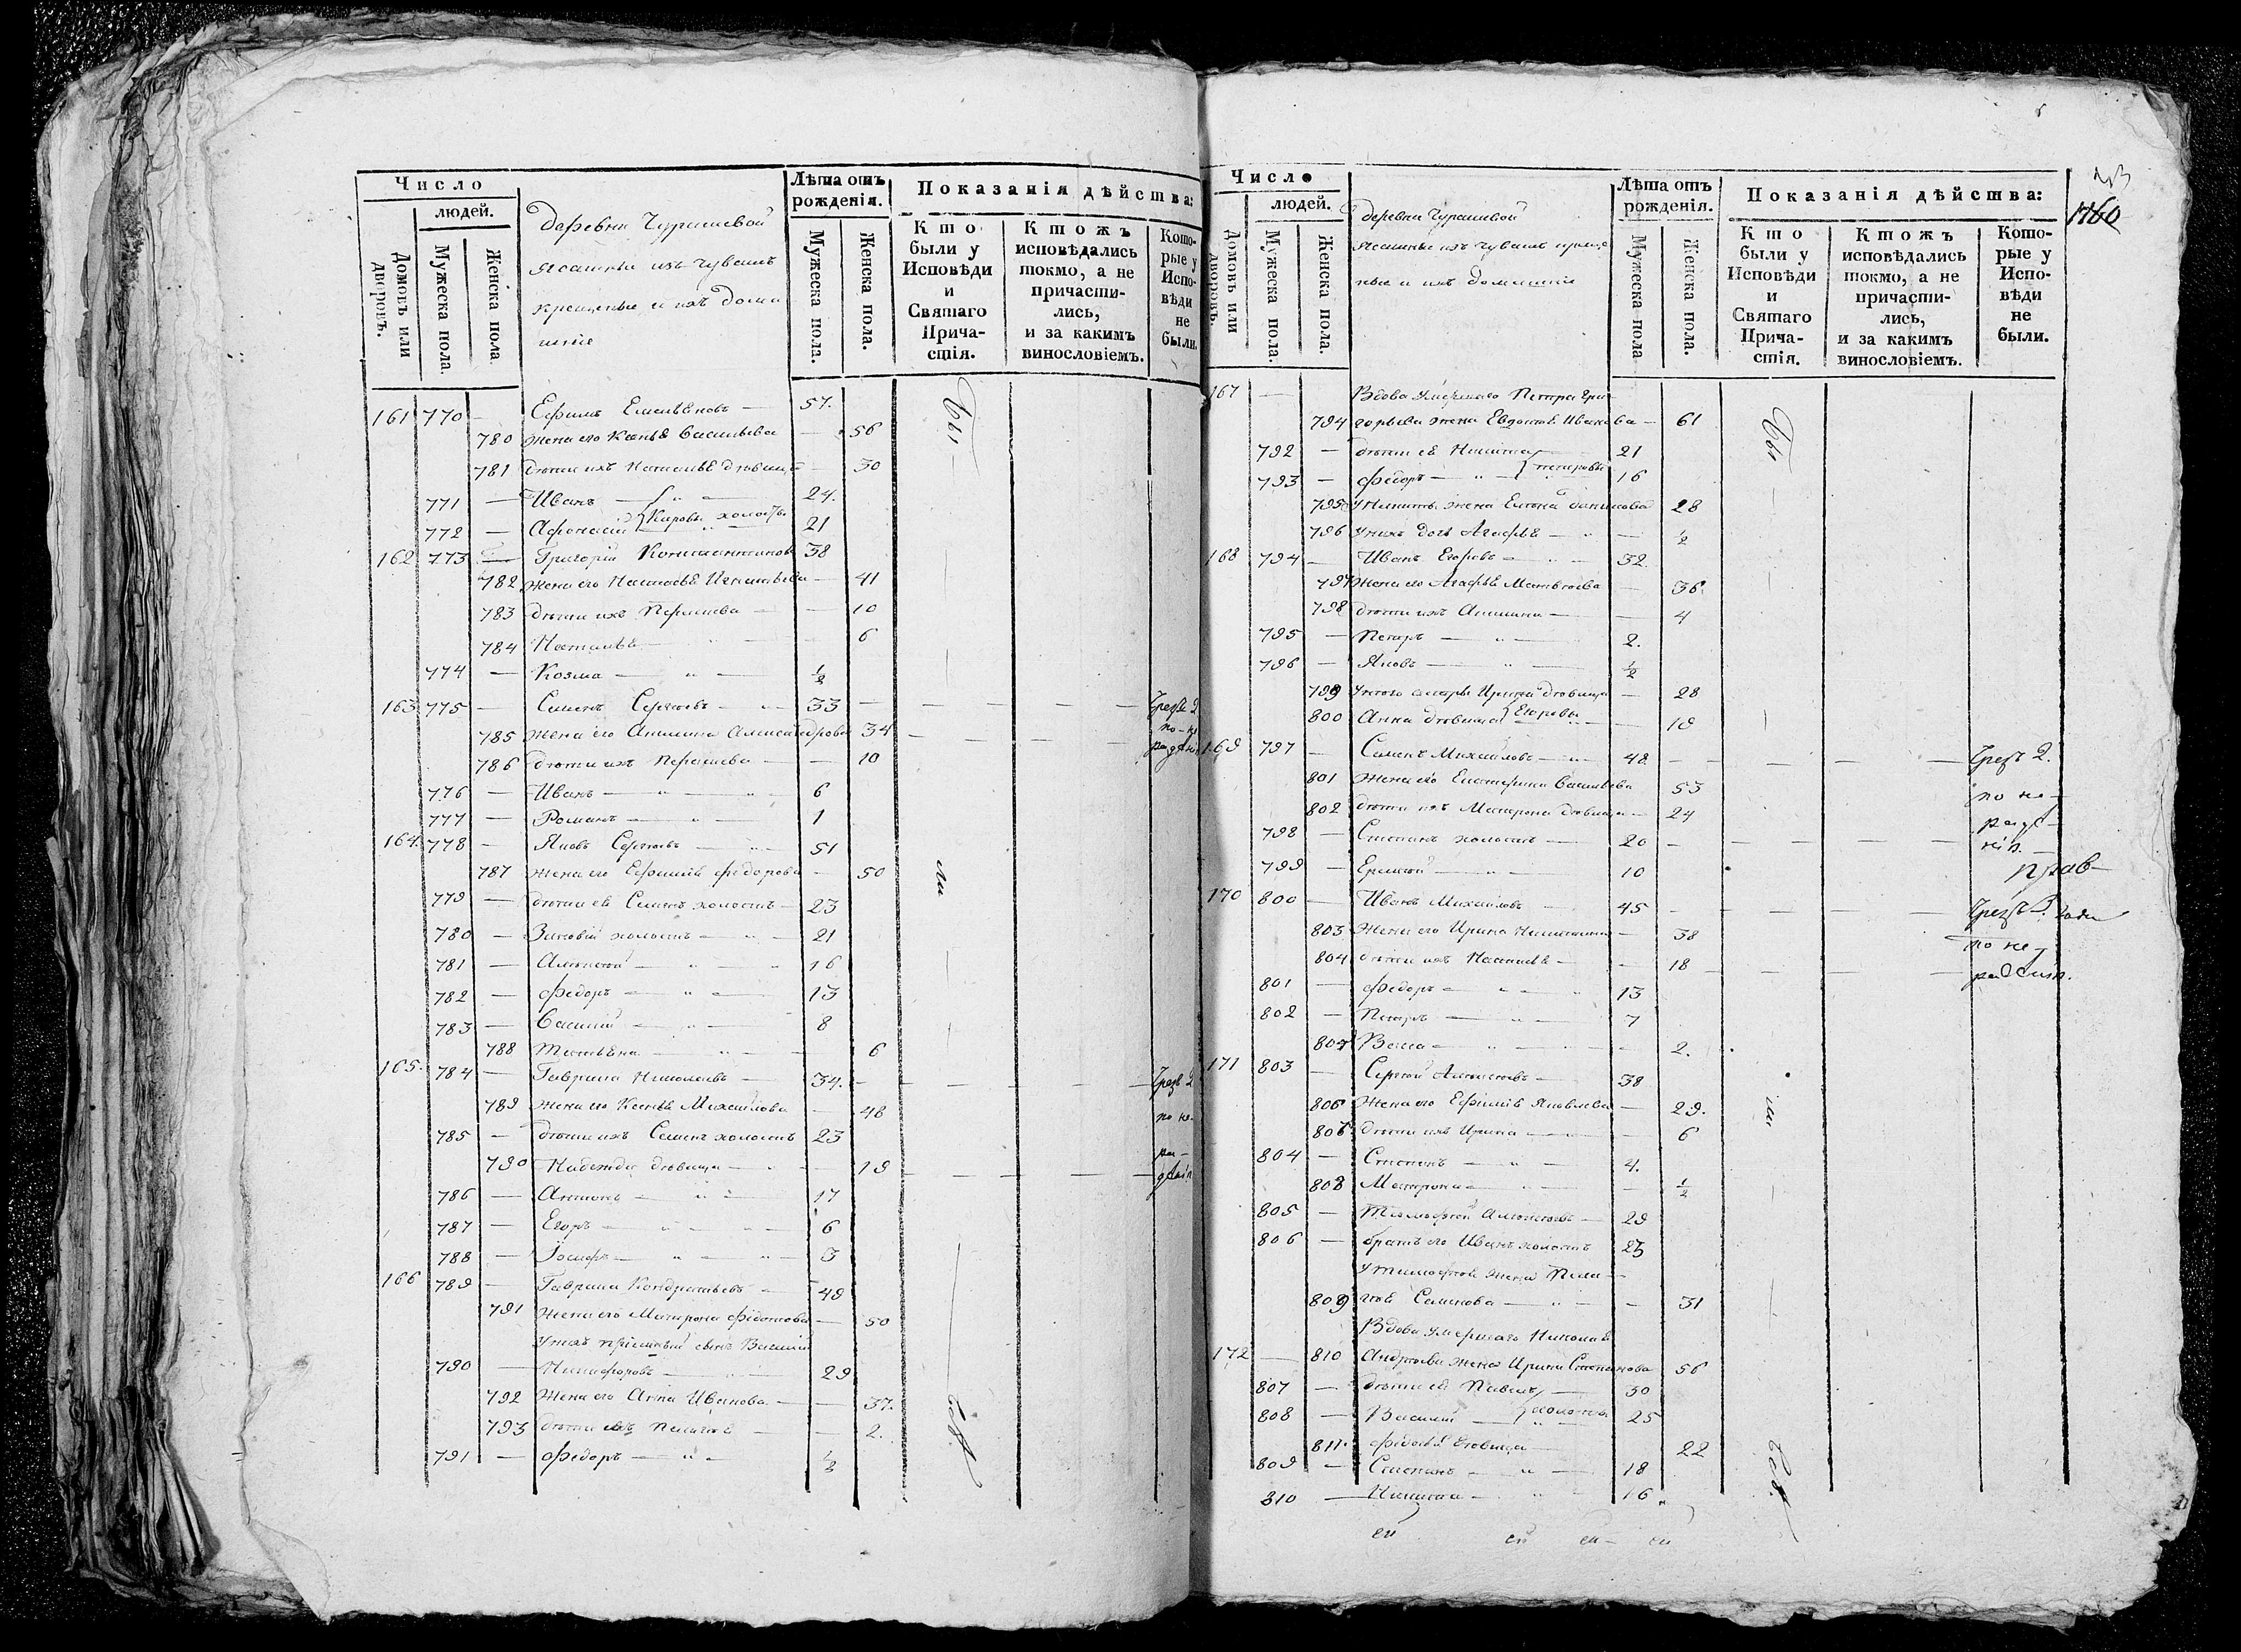 Число
людей.
Домовъ или дворовъ.
Мужеска пола.
Женска пола.
Деревни Чурашевой
ясашные изъ чувашъ
крещеные и ихъ дома
шніе
Лѣта отъ рожденія.
Мужеска пола.
Женска пола.
Показанія дѣйства:
Кто были у Исповѣди и Святаго Причастія.
Ктожъ исповѣдались токмо, а не причастились, и за какимъ винословіемъ.
Которые у Исповѣди не были.
161 770 — Ефимъ — 57.
780 жена его Васильева — 56
781 дѣти ихъ Наталья дѣвица — 30
771 — Иванъ — 24.
772 — Афонасій холосты 21
162 773 — Григорій Константиновъ 38
782 жена его Настасья Игнатьева — 41
783 дѣти ихъ — — 10
784 Наталья — 6
774 — Козма — " — ½
163 775 — Семенъ Сергѣевъ — 33 — — — — Чрезъ 2
785 жена его Анисия Александрова 34 — — — по не
786 дѣти ихъ — — 10
776 — Иванъ — " — 6
777 — Романъ — " — 1
164. 778 — Яковъ Сергѣевъ — 51
787 жена его Ефимія Федорова — 50
779 — дѣти ея Семенъ холостъ — 23
780 — Зиновій холостъ — " — 21
781 — Алексѣй — " — 16
782 — Федоръ — " — 13
783 — Василій — " — 8
788 Татьяна — " — 6
165. 784 — Гаврила Николаевъ — 34. — — — — Чрезъ 2
789 жена его Ксенья Михайлова — 48 по не-
785 — дѣти ихъ Семенъ холостъ 23
ра-
790 Надежда дѣвица — 19 — — — —
786 — Антонъ — " — 17
787 — Егоръ — " — 6
788 — Іосифъ — " — 3
166 789 — Гаврила Кондратьевъ — 49
791 жена его Матрона Федотова — 50
У нихъ пріемный сынъ Василій
790 — Никифоровъ — 29
792 жена его Анна Иванова — 37.
793 дѣти ихъ Пелагея — 2.
791 — Федоръ — " — ½
Бы
ли
всѣ
Число
людей.
Домовъ или дворовъ.
Мужеска пола.
Женска пола.
деревни Чурашевой
ясашные изъ чувашъ креще
ные и ихъ домашніе
Лѣта отъ рожденія.
Мужеска пола
Женска пола.
Показанія дѣйства:
Кто были у Исповѣди и Святаго Причастія.
Ктожъ исповѣдались токмо, а не причастились, и за какимъ винословіемъ.
Которые у Исповѣди не были.
1760
167 — Вдова умершаго Петра Гри-
794 горьева жена Евдокия Иванова — 61
792 — дѣти ея Никита 21
793 — Федоръ — " — Петровы 16
795 У Никиты жена Елена Данилова 28
796 У нихъ дочь Агафья — " — ½
168 794 — Иванъ Егоровъ — " — 32.
797 жена его Агафья Матвѣева — 36.
798 дѣти ихъ — — 4
795 — Петръ — " — 2.
796 — Яковъ — " — ½
799 У него сестры Ирина дѣвица — 28
800 Анна дѣвица Егоровы — 19
169 797 — Семенъ Михайловъ — 48. — — — — Чрезъ 2.
801 жена его Екатерина Васильева 53
по не-
802 дѣти ихъ Матрона дѣвица — 24
798 — Степанъ холостъ — 20 — — — —
799 — Еремѣй — — 10
170 800 — Иванъ Михайловъ — 45 — — — — Чрезъ 3. года
803 жена его Ирина Никитина — 38
по не-
804 дѣти ихъ Настасья — — 18 — — — радѣнію.
801 — Федоръ — " — 13
802 — Петръ — " — 7
805 Васса — " — 2.
171 803 — Сергѣй Алексѣевъ — 38
806 жена его Ефимія Яковлева — 29.
806 дѣти ихъ Ирина — 6
804 — Степанъ — " — 4.
808 Матрона — " — ½
805 — Тимофей Алексѣевъ — 29
806 — братъ его Иванъ холостъ 23
У Тимофея жена Пела-
809 гея Семенова — " — 31
Вдова умершаго Николая
172 — 810 Андрѣева жена Ирина Степанова 56
807 — дѣти ея Павелъ — 30
808 — Василій — холосты 25
811. Федосья дѣвица — 22
809 — Степанъ — " — 18
810 — Никита — " — 16
Бы
ли
всѣ